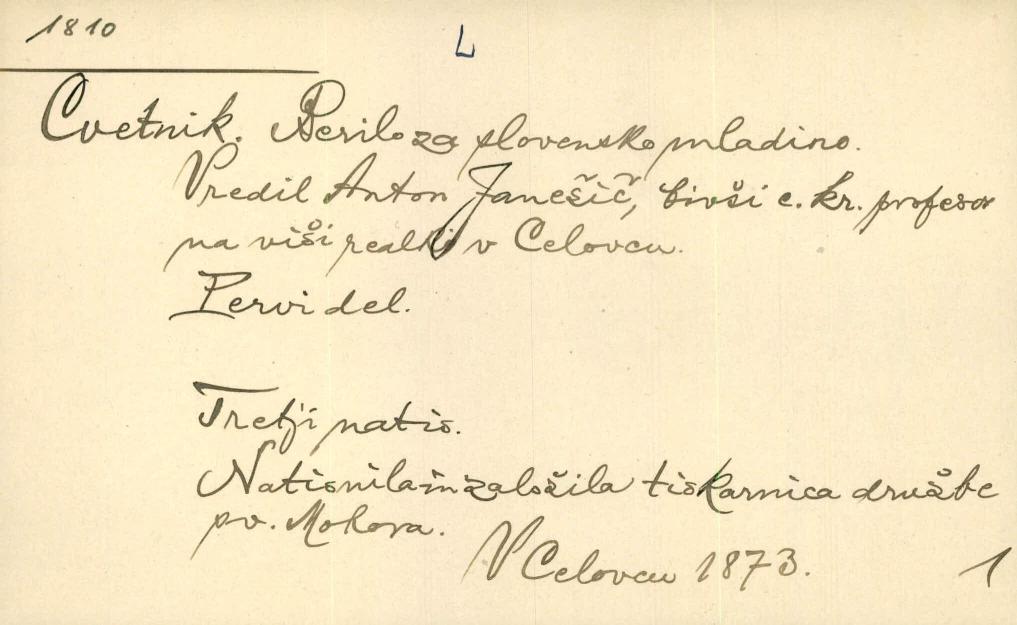 1810
L
Cvetnik. Berilo za slovensko mladino.
Vredil Anton Janešič, bivši c. kr. profesor
na viši realki v Celovcu.
Pervi del.
Tretji natis.
Natisnila in založila tiskarnica družbe
sv. Mohora.
V Celovcu 1873.
1